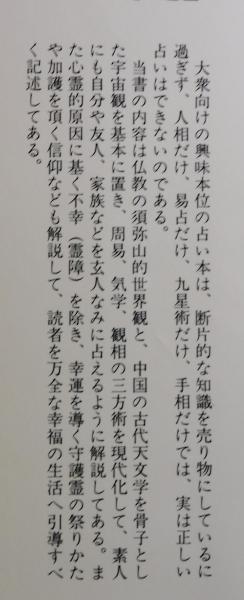 大衆向けの興味本位の占い本は、断片的な知識を売り物にしているに
過ぎず、人相だけ、易占だけ、九星術だけ、手相だけでは、実は正しい
占いはできないのである。
当書の内容は仏教の須弥山的世界観と、中国の古代天文学を骨子とし
た宇宙観を基本に置き、周易、気学、観相の三方術を現代化して、素人
にも自分や友人、家族などを玄人なみに占えるように解説してある。ま
た心霊的原因に基く不幸（霊障）を除き、幸運を導く守護霊の祭りかた
や加護を頂く信仰なども解説して、読者を万全な幸福の生活へ引導すべ
く記述してある。